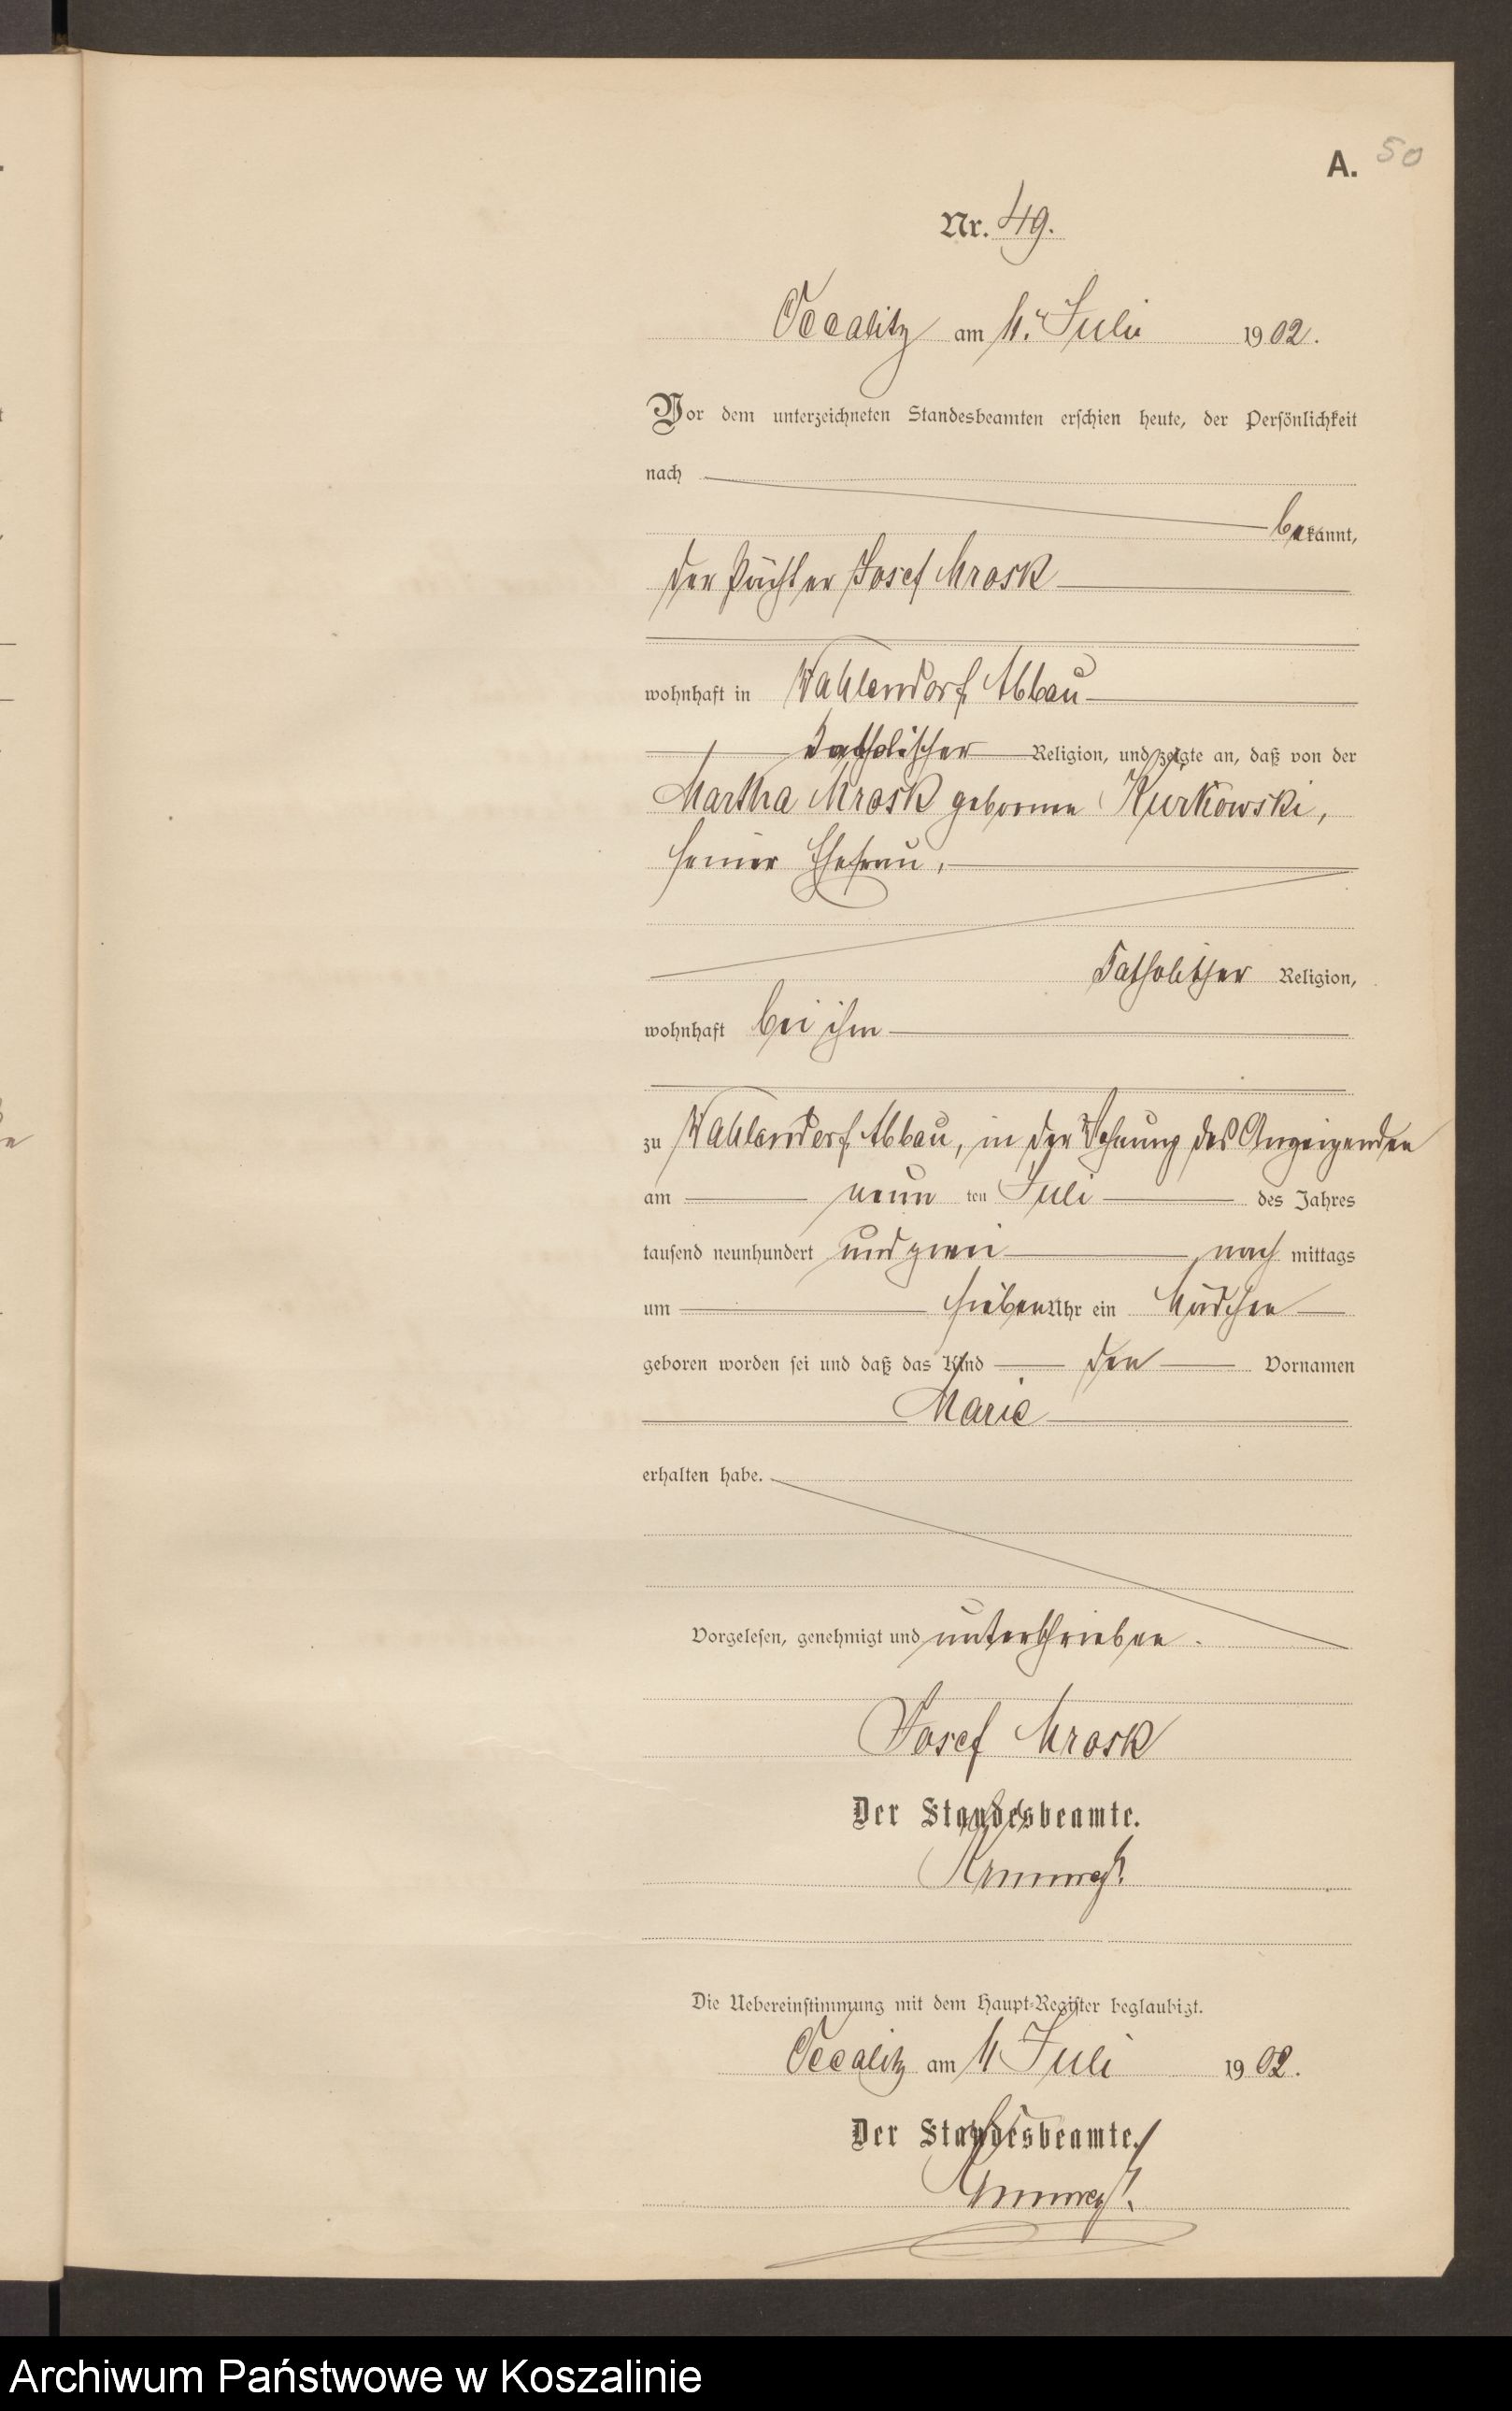 A. 50
Nr. 49.
Occalitz am 11. Juli 1902.
Vor dem unterzeichneten Standesbeamten erschien heute, der Persönlichkeit
nach
bekannt,
der Pächter Josef Mrosk
wohnhaft in Wahlendorf Abbau
katholischer Religion, und zeigte an, daß von der
Martha Mrosk geborene Kurkowski,
seiner Ehefrau,
katholischer Religion,
wohnhaft bei ihm
zu Wahlendorf Abbau, in der Wohnung des Anzeigenden
am neun ten Juli des Jahres
tausend neunhundert und zwei nach mittags
um sieben Uhr ein Mädchen
geboren worden sei und daß das Kind den Vornamen
Marie
erhalten habe.
Vorgelesen, genehmigt und unterschrieben.
Josef Mrosk
Der Standesbeamte.
Die Uebereinstimmung mit dem Haupt-Register beglaubigt.
Occalitz am 11 Juli 1902.
Der Standesbeamte.
Archiwum Państwowe w Koszalinie